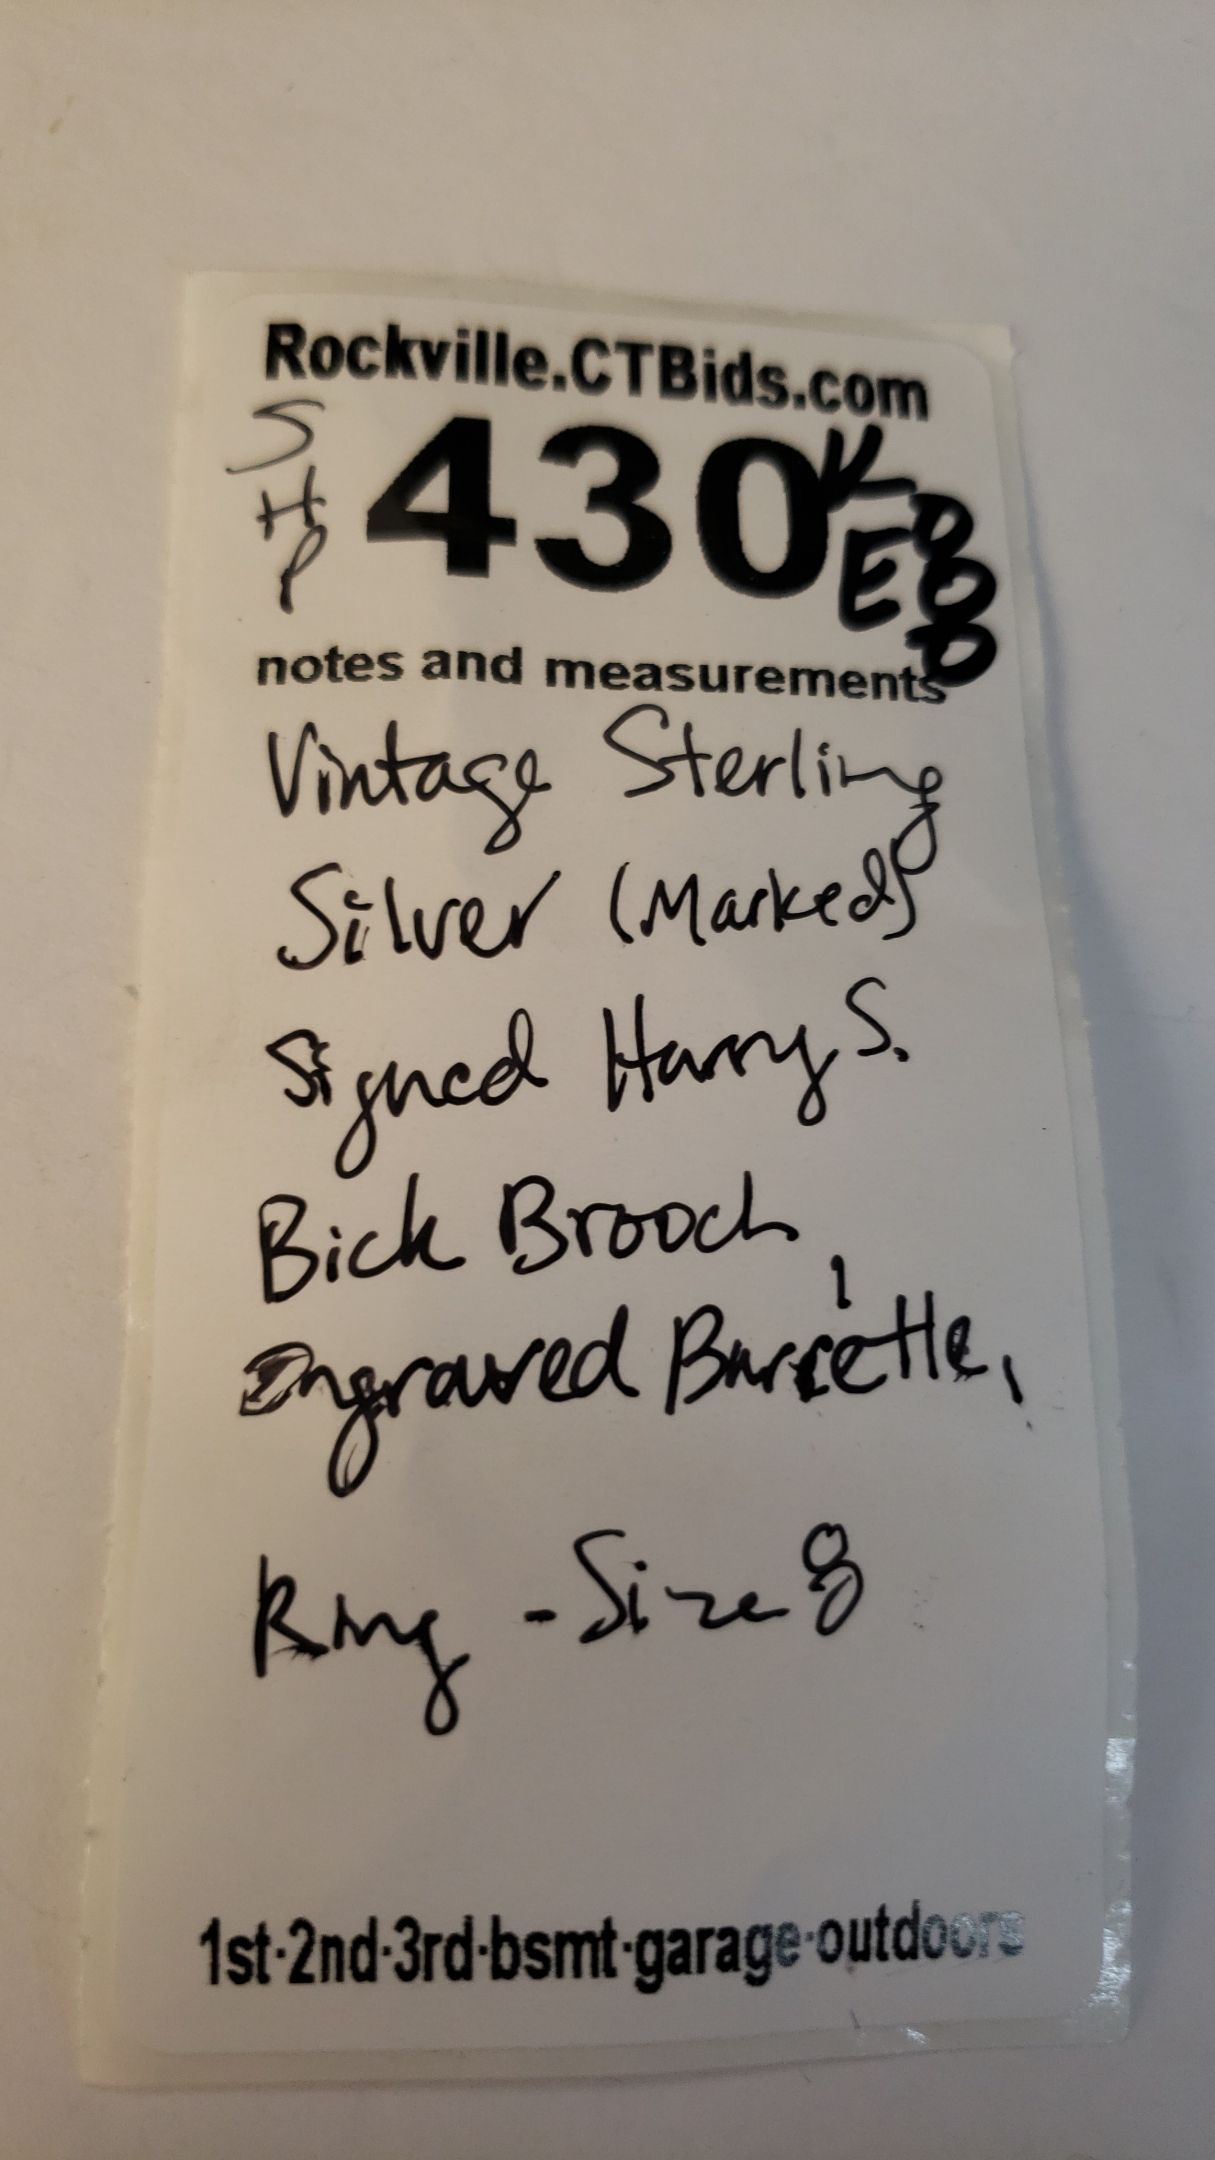 Rockville.CTBids.com
SHP
430
notes and measurements
Vintage Sterling
Silver (Marked)
Signed Harry S.
Bick Brooch,
Engraved Barrette,
Ring - Size 8
1st·2nd·3rd·bsmt·garage·outdoors